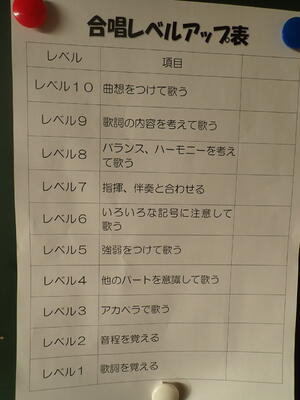 合唱レベルアップ表
レベル 項目
レベル10 曲想をつけて歌う
レベル9 歌詞の内容を考えて歌う
レベル8 バランス、ハーモニーを考え
て歌う
レベル7 指揮、伴奏と合わせる
レベル6 いろいろな記号に注意して
歌う
レベル5 強弱をつけて歌う
レベル4 他のパートを意識して歌う
レベル3 アカペラで歌う
レベル2 音程を覚える
レベル1 歌詞を覚える